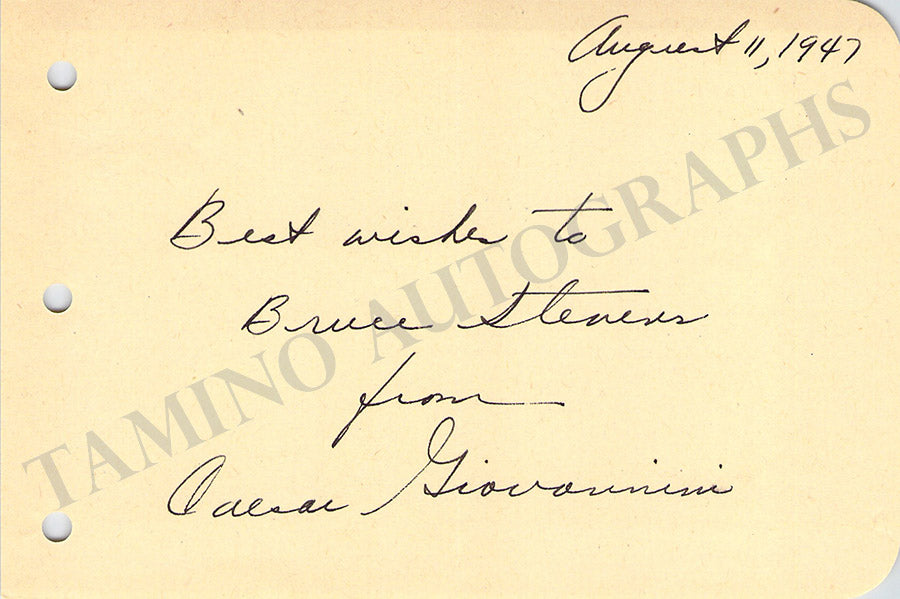 August 11, 1947
Best wishes to
Bruce Stevens
from
Caesar Giovannini
TAMINO AUTOGRAPHS